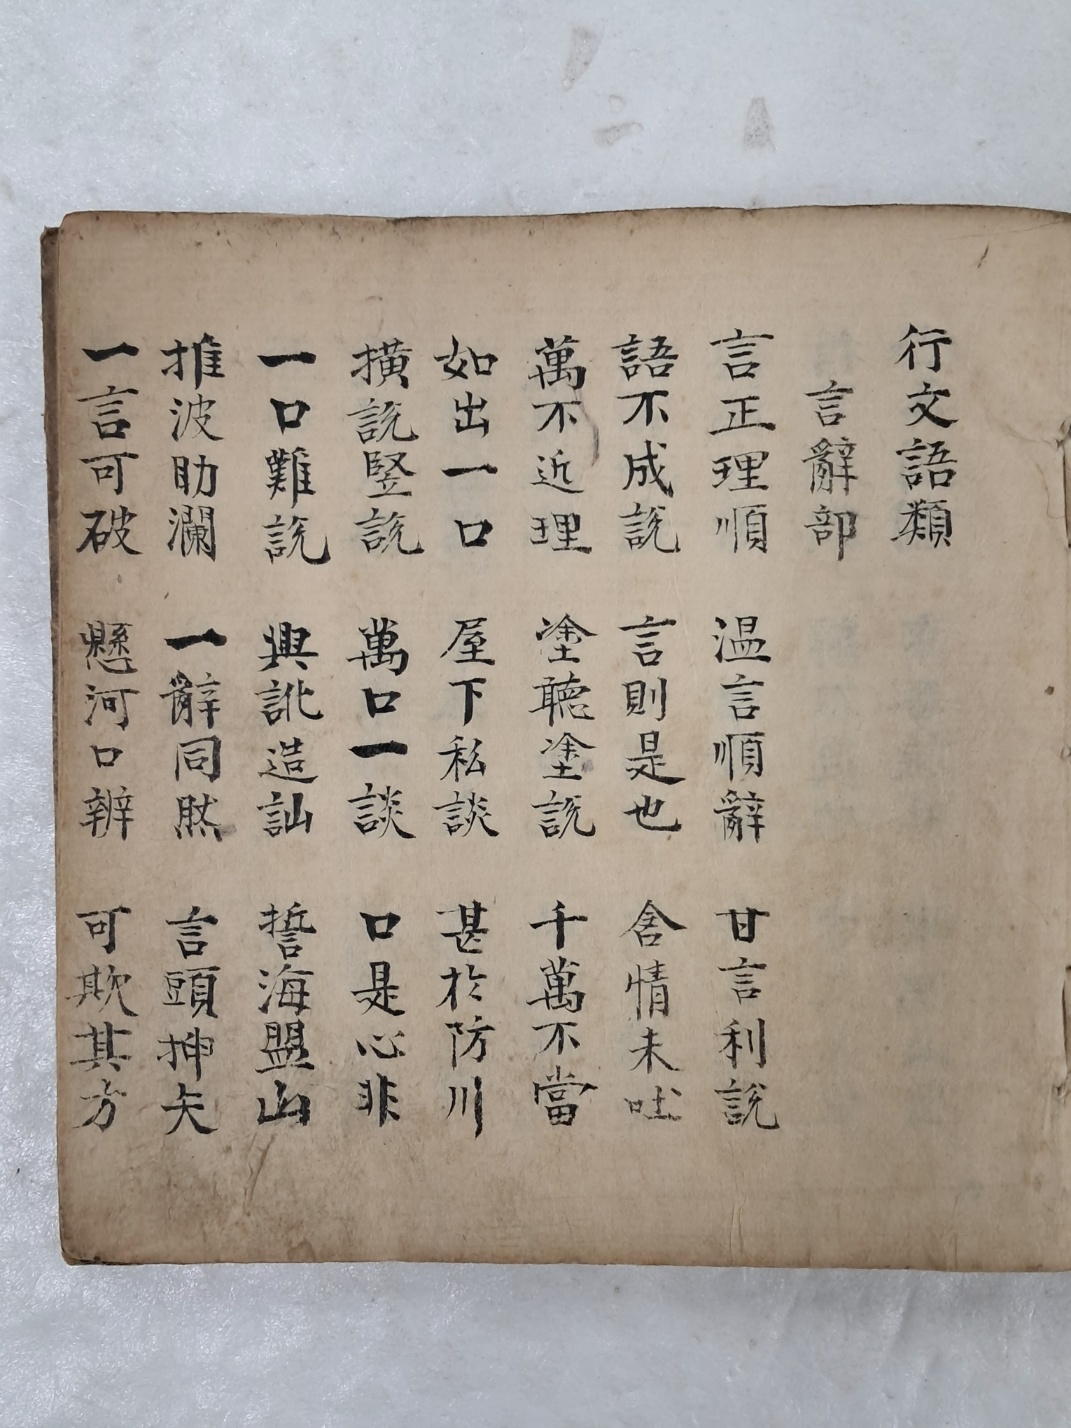 行文語類
言辭部
言正理順 温言順辭 甘言利說
語不成説 言則是也 含情未吐
萬不近理 塗聽塗説 千萬不當
如出一口 屋下私談 甚於防川
橫説竪説 萬口一談 口是心非
一口難説 興訛造訕 誓海盟山
推波助瀾 一辭同然 言頭揷矢
一言可破 懸河口辨 可欺其方